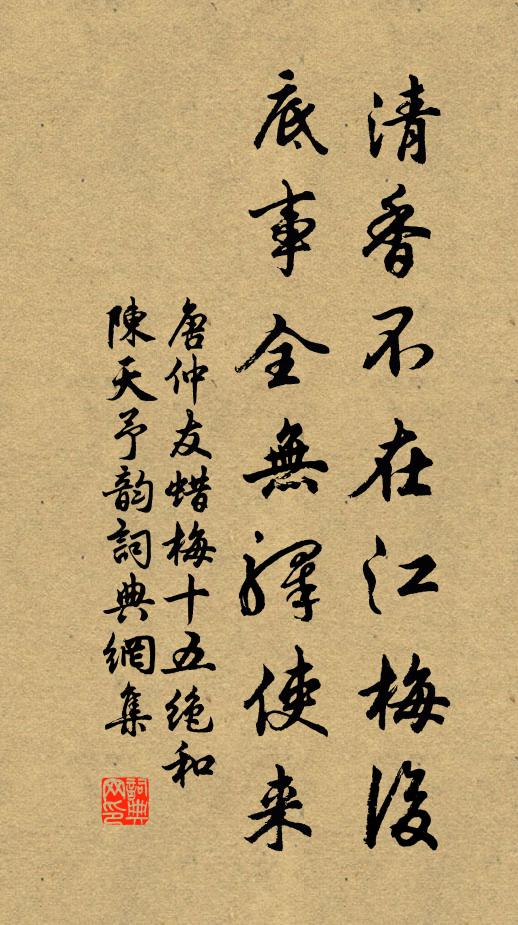 清香不在江梅後
底事全無驛使来
唐仲友蜡梅十五绝和
陳天予韵詞典網集
詞典
网印